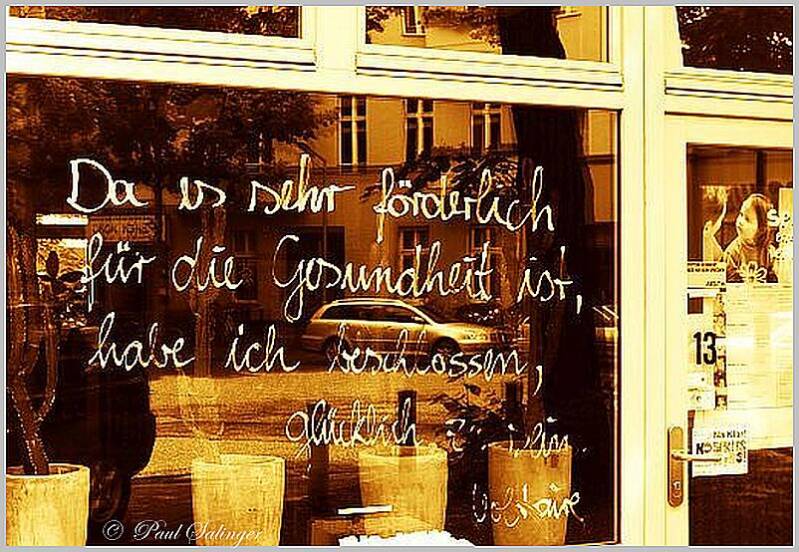 Da es sehr förderlich
für die Gesundheit ist,
habe ich beschlossen,
glücklich zu sein.
Voltaire
13
© Paul Salinger